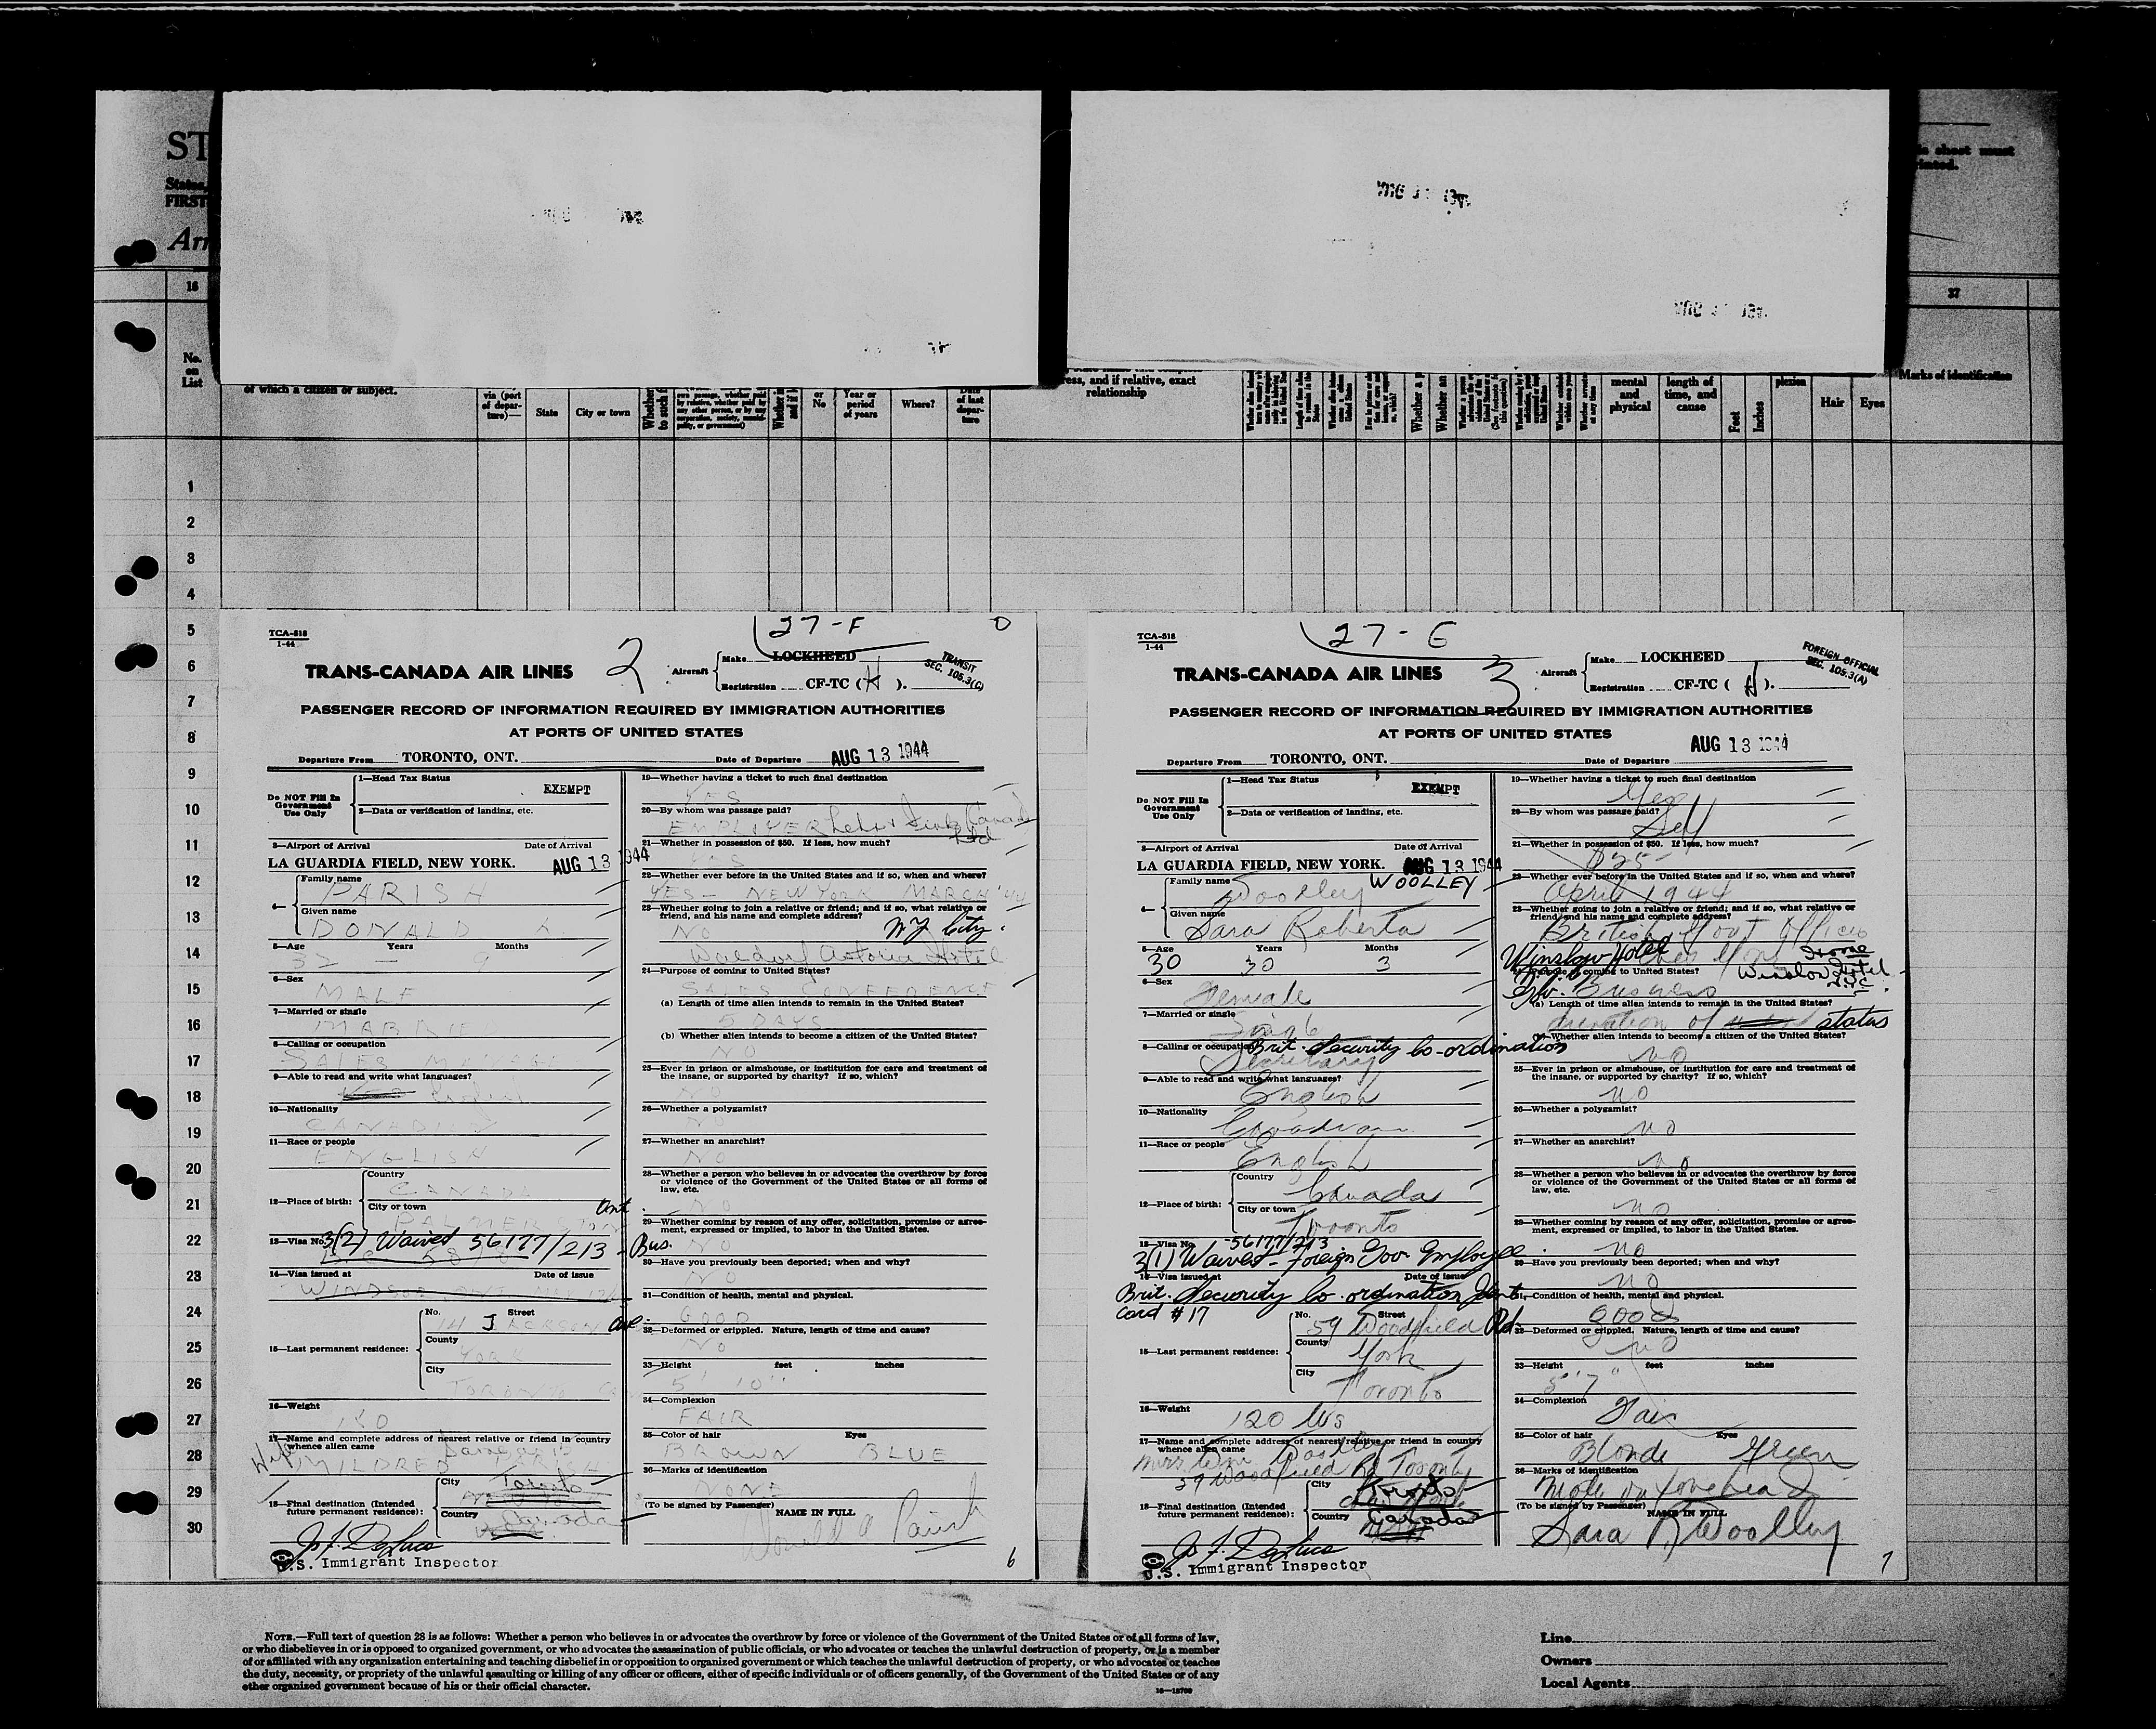 ST
States,
FIRST
Arr
s sheet must
inated.
16
37
No.
on
List
of which a citizen or subject.
via (port
of depar-
ture)—
State
City or town
or
No
Year or
period
of years
Where?
Date
of last
depar-
ture
ress, and if relative, exact
relationship
mental
and
physical
length of
time, and
cause
Feet
Inches
plexion
Hair
Eyes
Marks of identification
1
2
3
4
5
6
7
8
9
10
11
12
13
14
15
16
17
18
19
20
21
22
23
24
25
26
27
28
29
30
27-F
TCA-518
1-44
TRANS-CANADA AIR LINES
2
Aircraft
Make LOCKHEED
Registration CF-TC (H).
TRANSIT
SEC. 105.3(C)
PASSENGER RECORD OF INFORMATION REQUIRED BY IMMIGRATION AUTHORITIES
AT PORTS OF UNITED STATES
Departure From TORONTO, ONT. Date of Departure AUG 13 1944
Do NOT Fill In
Government
Use Only
1—Head Tax Status
EXEMPT
2—Data or verification of landing, etc.
3—Airport of Arrival Date of Arrival
LA GUARDIA FIELD, NEW YORK. AUG 13 1944
4—
Family name
PARISH
Given name
DONALD A.
5—Age Years Months
32 — 9
6—Sex
MALE
7—Married or single
8—Calling or occupation
SALES MANAGER
9—Able to read and write what languages?
English
10—Nationality
CANADIAN
11—Race or people
ENGLISH
12—Place of birth:
Country
CANADA
City or town
PALMERSTON Ont.
13—Visa No. 3(2) Waived 56177/213 - Bus.
14—Visa issued at Date of issue
WINDSOR
15—Last permanent residence:
No. Street
141 JACKSON Ave.
County
YORK
City
TORONTO
16—Weight
17—Name and complete address of nearest relative or friend in country
whence alien came
Wife MILDRED PARISH
18—Final destination (Intended
future permanent residence):
City Toronto
Country Canada
J. F. DeLuca
U.S. Immigrant Inspector
19—Whether having a ticket to such final destination
YES
20—By whom was passage paid?
EMPLOYER
21—Whether in possession of $50. If less, how much?
YES
22—Whether ever before in the United States and if so, when and where?
YES — NEW YORK MARCH '44
23—Whether going to join a relative or friend; and if so, what relative or
friend, and his name and complete address?
NO N.Y. City.
Waldorf Astoria Hotel
24—Purpose of coming to United States?
SALES CONFERENCE
(a) Length of time alien intends to remain in the United States?
5 DAYS
(b) Whether alien intends to become a citizen of the United States?
NO
25—Ever in prison or almshouse, or institution for care and treatment of
the insane, or supported by charity? If so, which?
NO
26—Whether a polygamist?
NO
27—Whether an anarchist?
NO
28—Whether a person who believes in or advocates the overthrow by force
or violence of the Government of the United States or all forms of
law, etc.
NO
29—Whether coming by reason of any offer, solicitation, promise or agree-
ment, expressed or implied, to labor in the United States.
NO
30—Have you previously been deported; when and why?
NO
31—Condition of health, mental and physical.
GOOD
32—Deformed or crippled. Nature, length of time and cause?
NO
33—Height feet inches
5' 10"
34—Complexion
FAIR
35—Color of hair Eyes
BROWN BLUE
36—Marks of identification
NONE
(To be signed by Passenger) NAME IN FULL
Donald A Parish
6
27-G
TCA-518
1-44
TRANS-CANADA AIR LINES
3
Aircraft
Make LOCKHEED
Registration CF-TC (H).
FOREIGN OFFICIAL
SEC. 105.3(A)
PASSENGER RECORD OF INFORMATION REQUIRED BY IMMIGRATION AUTHORITIES
AT PORTS OF UNITED STATES
AUG 13 1944
Departure From TORONTO, ONT. Date of Departure
Do NOT Fill In
Government
Use Only
1—Head Tax Status
EXEMPT
2—Data or verification of landing, etc.
3—Airport of Arrival Date of Arrival
LA GUARDIA FIELD, NEW YORK. AUG 13 1944
4—
Family name
Woolley WOOLLEY
Given name
Sara Roberta
5—Age Years Months
30 30 3
6—Sex
Female
7—Married or single
Single
8—Calling or occupation Brit. Security Co-ordination
Secretary
9—Able to read and write what languages?
English
10—Nationality
Canadian
11—Race or people
English
12—Place of birth:
Country
Canada
City or town
Toronto
13—Visa No. 56177/213
3(1) Waived - Foreign Gov Employee
14—Visa issued at Date of issue
Brit. Security Co-ordination Ident.
Card #17
15—Last permanent residence:
No. Street
59 Woodfield Rd.
County
York
City
Toronto
16—Weight
120 lbs
17—Name and complete address of nearest relative or friend in country
whence alien came
Mrs Wm Woolley
59 Woodfield Rd Toronto
18—Final destination (Intended
future permanent residence):
City Toronto
Country Canada
J. F. DeLuca
U.S. Immigrant Inspector
19—Whether having a ticket to such final destination
Yes
20—By whom was passage paid?
Self
21—Whether in possession of $50. If less, how much?
$25-
22—Whether ever before in the United States and if so, when and where?
April 1944
23—Whether going to join a relative or friend; and if so, what relative or
friend, and his name and complete address?
British Govt Office
Winslow Hotel
24—Purpose of coming to United States? Winslow Hotel
Gov. Business
(a) Length of time alien intends to remain in the United States?
duration of status
(b) Whether alien intends to become a citizen of the United States?
no
25—Ever in prison or almshouse, or institution for care and treatment of
the insane, or supported by charity? If so, which?
no
26—Whether a polygamist?
no
27—Whether an anarchist?
no
28—Whether a person who believes in or advocates the overthrow by force
or violence of the Government of the United States or all forms of
law, etc.
no
29—Whether coming by reason of any offer, solicitation, promise or agree-
ment, expressed or implied, to labor in the United States.
no
30—Have you previously been deported; when and why?
no
31—Condition of health, mental and physical.
good
32—Deformed or crippled. Nature, length of time and cause?
no
33—Height feet inches
5' 7"
34—Complexion
Fair
35—Color of hair Eyes
Blonde Green
36—Marks of identification
Mole on forehead
(To be signed by Passenger) NAME IN FULL
Sara R Woolley
7
NOTE.—Full text of question 28 is as follows: Whether a person who believes in or advocates the overthrow by force or violence of the Government of the United States or of all forms of law,
or who disbelieves in or is opposed to organized government, or who advocates the assassination of public officials, or who advocates or teaches the unlawful destruction of property, or is a member
of or affiliated with any organization entertaining and teaching disbelief in or opposition to organized government or which teaches the unlawful destruction of property, or who advocates or teaches
the duty, necessity, or propriety of the unlawful assaulting or killing of any officer or officers, either of specific individuals or of officers generally, of the Government of the United States or of any
other organized government because of his or their official character.
16—18700
Line
Owners
Local Agents